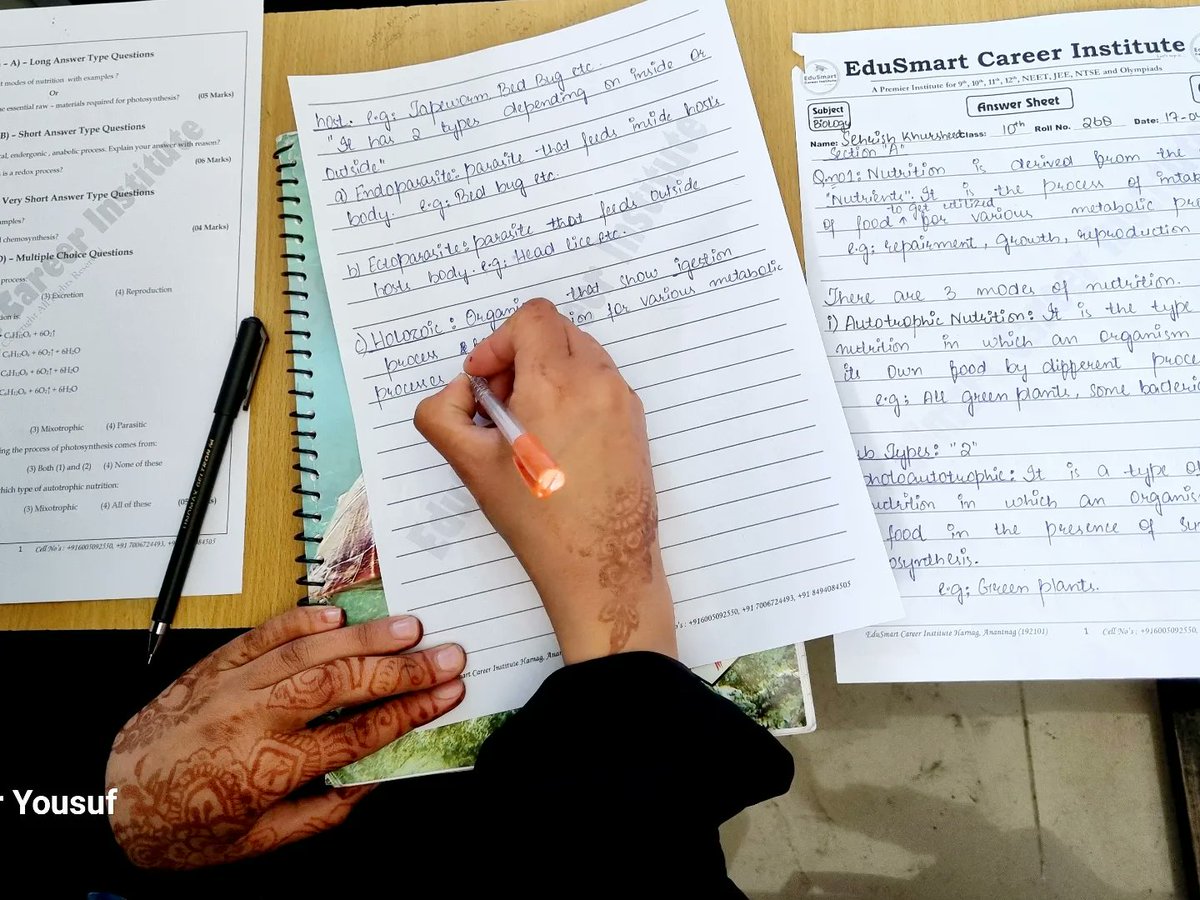 – A) – Long Answer Type Questions
t modes of nutrition with examples ?
Or
e essential raw – materials required for photosynthesis?
(05 Marks)
B) – Short Answer Type Questions
al, endergonic , anabolic process. Explain your answer with reason?
(06 Marks)
is a redox process?
Very Short Answer Type Questions
amples?
(04 Marks)
d chemosynthesis?
D) – Multiple Choice Questions
process:
(3) Excretion (4) Reproduction
tion is:
C₆H₁₂O₆ + 6O₂↑
C₆H₁₂O₆ + 6O₂↑ + 6H₂O
C₆H₁₂O₆ + 6O₂↑ + 6H₂O
C₆H₁₂O₆ + 6O₂↑ + 6H₂O
(3) Mixotrophic (4) Parasitic
ing the process of photosynthesis comes from:
(3) Both (1) and (2) (4) None of these
which type of autotrophic nutrition:
(3) Mixotrophic (4) All of these
1 Cell No's : +916005092550, +91 7006724493, +91 8494084505
Career Institute
host. e.g: Tapewarm, Bed Bug etc.
"It has 2 types depending on inside or
outside"
a) Endoparasite: parasite that feeds inside host's
body. e.g: Bed bug etc.
b) Ectoparasite: parasite that feeds outside
hosts body. e.g: Head lice etc.
c) Holoznic: Organi that show igestion
process ion for various metabolic
processes
mart Career Institute Harnag, Anant
's : +916005092550, +91 7006724493, +91 8494084505
EduSmart Career Institute
A Premier Institute for 9th, 10th, 11th, 12th, NEET, JEE, NTSE and Olympiads
Subject
Biology
Answer Sheet
Name: Sehrish Khursheed Class: 10th Roll No. 260 Date: 17-0
Section "A"
Qno1: Nutrition is derived from the
"Nutrients". It is the process of intak
to get utilized
of food ^ for various metabolic pro
e.g: repairment, growth, reproduction
There are 3 modes of nutrition.
i) Autotrophic Nutrition: It is the type
nutrition in which an organism
its own food by different proce
e.g: All green plants, some bacteri
ub Types: "2"
hotoautotrophic: It is a type of
nutrition in which an organis
food in the presence of su
osynthesis.
e.g: Green plants.
EduSmart Career Institute Harnag, Anantnag (192101) 1 Cell No's : +916005092550,
r Yousuf